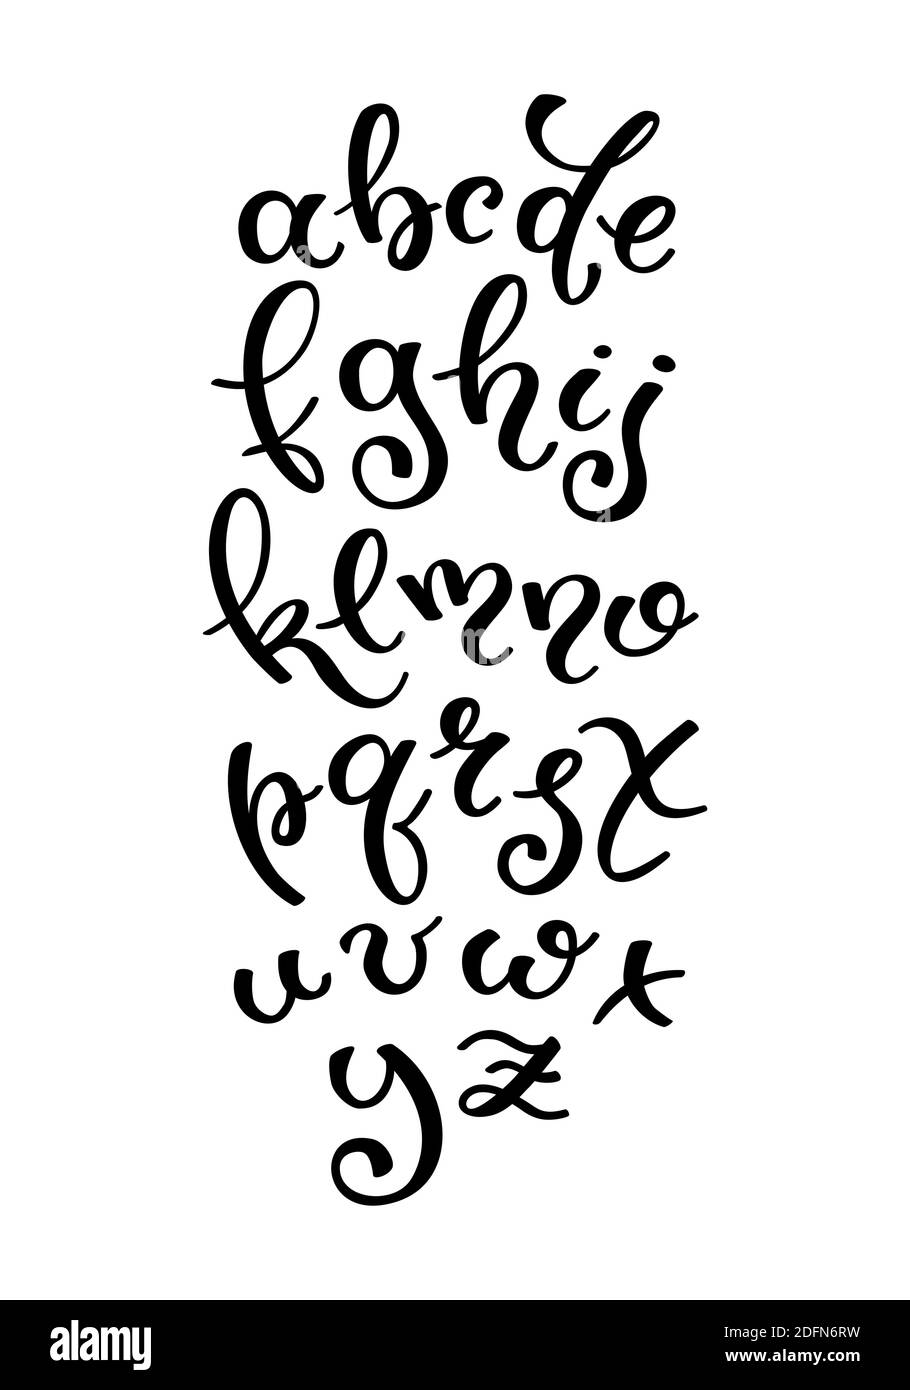 abcde
fghij
klmno
pqrst
uvwx
yz
alamy
Image ID: 2DFN6RW
www.alamy.com